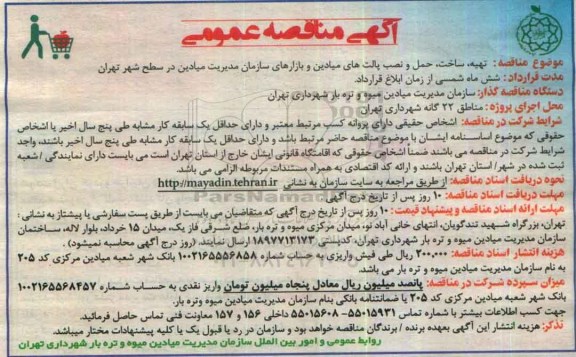 آگهی مناقصه عمومی
موضوع مناقصه : تهیه، ساخت، حمل و نصب پالت های میادین و بازارهای سازمان مدیریت میادین در سطح شهر تهران
مدت قرارداد : شش ماه شمسی از زمان ابلاغ قرارداد.
دستگاه مناقصه گذار: سازمان مدیریت میادین میوه و تره بار شهرداری تهران
محل اجرای پروژه : مناطق ۲۲ گانه شهرداری تهران
شرایط شرکت در مناقصه: اشخاص حقیقی دارای پروانه کسب مرتبط معتبر و دارای حداقل یک سابقه کار مشابه طی پنج سال اخیر یا اشخاص
حقوقی که موضوع اساسنامه ایشان با موضوع مناقصه حاضر مرتبط باشد و دارای حداقل یک سابقه کار مشابه طی پنج سال اخیر باشند، واجد
شرایط شرکت در مناقصه می باشند ضمناً اشخاص حقوقی که اقامتگاه قانونی ایشان خارج از استان تهران است می بایست دارای نمایندگی / شعبه
ثبت شده در شهر/ استان تهران باشند و ارائه کد اقتصادی به همراه مستندات مربوطه الزامی می باشد.
نحوه دریافت اسناد مناقصه: از طریق مراجعه به سایت سازمان به نشانی http://mayadin.tehran.ir
مهلت دریافت اسناد مناقصه: ۱۰ روز پس از تاریخ درج آگهی
مهلت ارائه اسناد مناقصه و پیشنهاد قیمت: ۱۰ روز پس از تاریخ درج آگهی که متقاضیان می بایست از طریق پست سفارشی یا پیشتاز به نشانی :
تهران، بزرگراه شهید تندگویان، انتهای خانی آباد نو، میدان مرکزی میوه و تره بار، ضلع شرقی فاز یک، میدان ۱۵ خرداد، بلوار لاله، ساختمان
سازمان مدیریت میادین میوه و تره بار شهرداری تهران، کدپستی ۱۸۹۷۷۱۳۱۷۳ ارسال نمایند. (روز درج آگهی محاسبه نمیشود) .
هزینه انتشار اسناد مناقصه: ۲۰۰,۰۰۰ ریال طی فیش واریزی به حساب شماره ۱۰۰۲۱۶۵۵۵۶۸۵۸ بانک شهر شعبه میادین مرکزی کد ۲۰۵
به نام سازمان مدیریت میادین میوه و تره بار می باشد.
میزان سپرده شرکت در مناقصه: پانصد میلیون ریال معادل پنجاه میلیون تومان واریز نقدی به حساب شماره ۱۰۰۲۱۶۵۵۶۸۴۵۷
بانک شهر شعبه میادین مرکزی کد ۲۰۵ یا ضمانتنامه بانکی بنام سازمان مدیریت میادین میوه وتره بار.
جهت کسب اطلاعات بیشتر با شماره تماس ۵۵۰۱۵۹۳۱- ۵۵۰۱۵۶۰۸ داخلی ۱۵۶ و ۱۵۷ معاونت فنی تماس حاصل فرمائید.
تذکر: هزینه انتشار این آگهی بعهده برنده / برندگان مناقصه خواهد بود و سازمان در رد یا قبول یک یا کلیه پیشنهادات مختار میباشد.
روابط عمومی و امور بین الملل سازمان مدیریت میادین میوه و تره بار شهرداری تهران